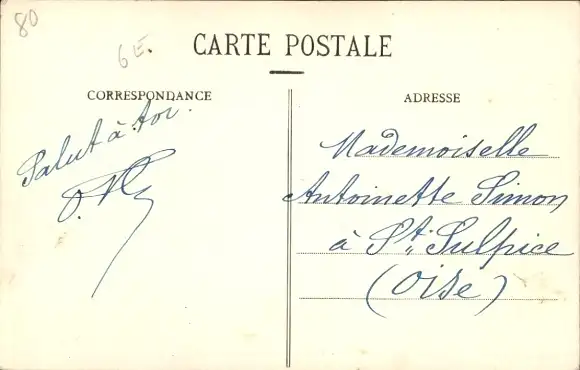 80
6E.
CARTE POSTALE
CORRESPONDANCE
Salut à toi.
ADRESSE
Mademoiselle
Antoinette Simon
à St. Sulpice
(Oise)